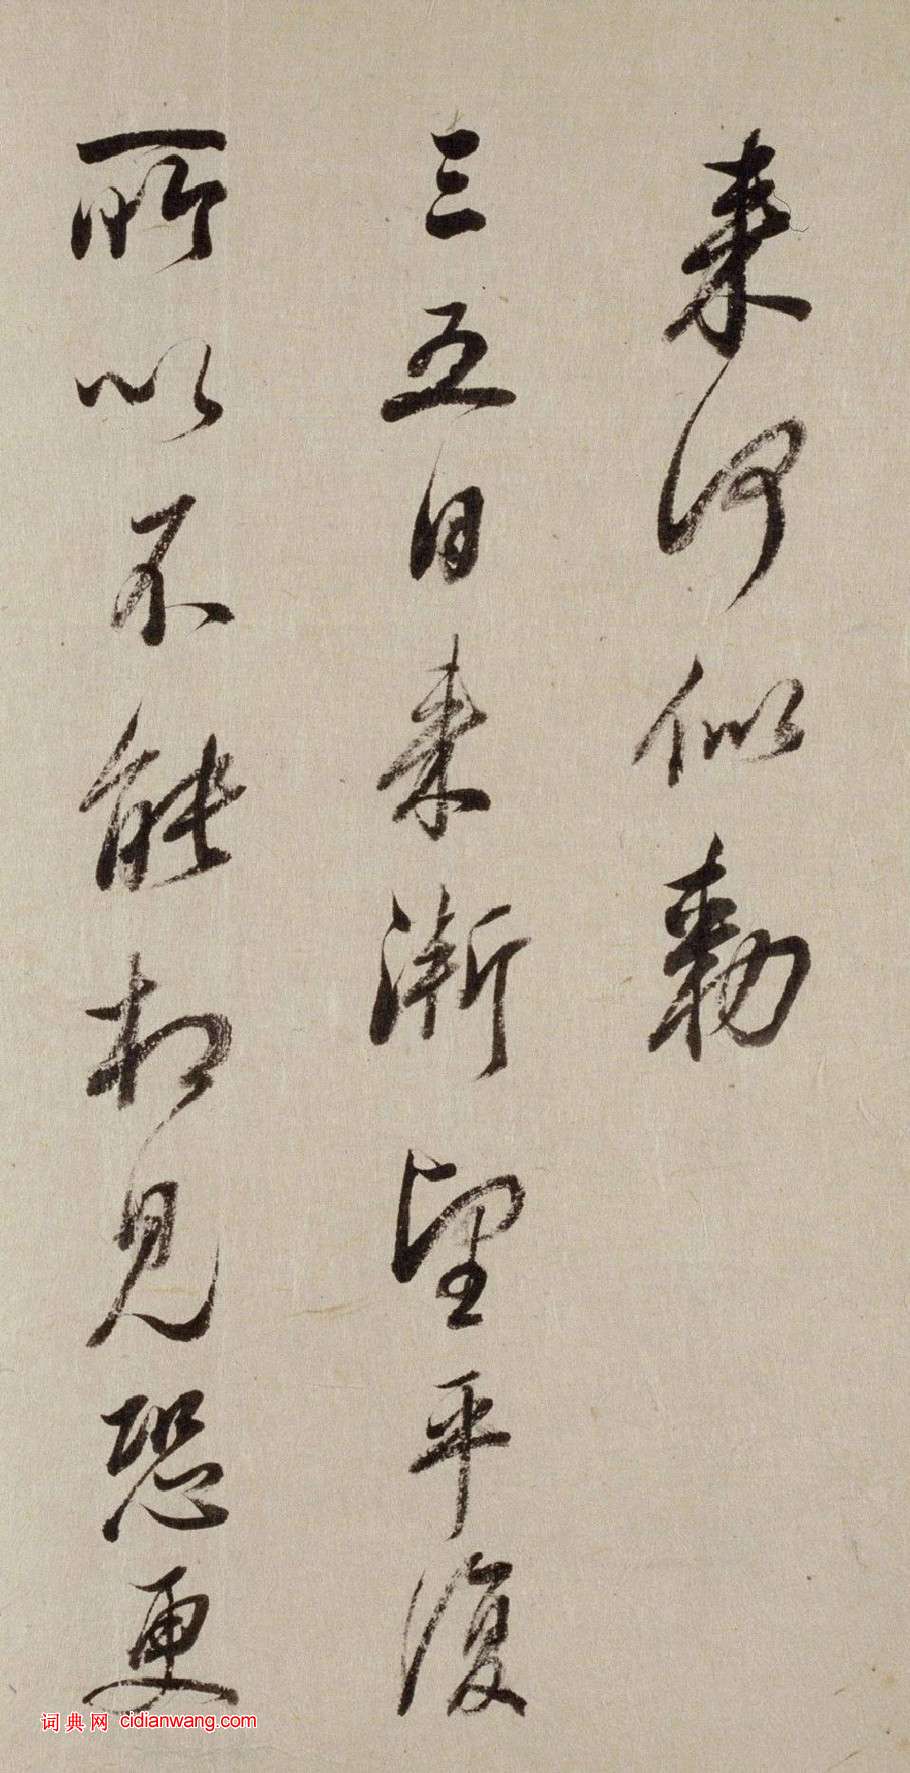 来何似勑
三五日来漸望平復
所以不能相見恐更
词典网 cidianwang.com